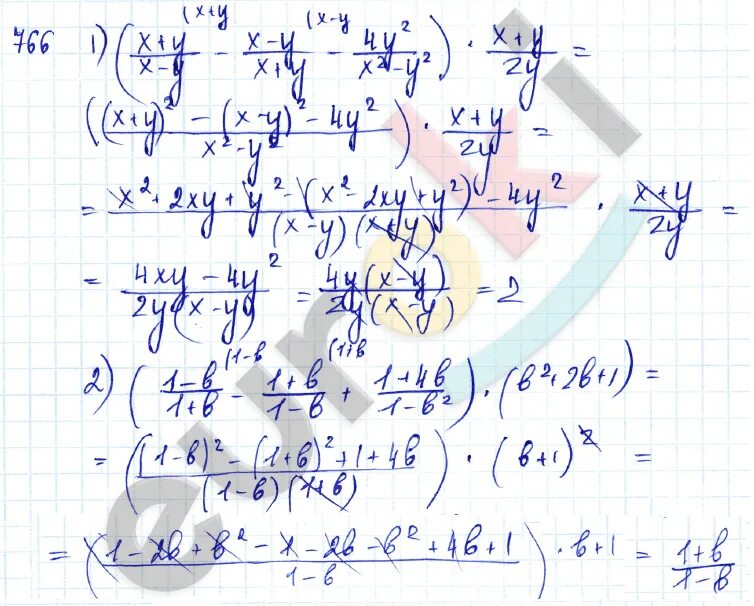 766 1) ( (x+y)/(x-y) (x+y - (x-y)/(x+y) (x-y - 4y²/(x²-y²) ) · (x+y)/(2y) =
( ((x+y)² - (x-y)² - 4y²)/(x²-y²) ) · (x+y)/(2y) =
= (x² + 2xy + y² - (x² - 2xy + y²) - 4y²)/((x-y)(x+y)) · (x+y)/(2y) =
= (4xy - 4y²)/(2y(x-y)) = (4y(x-y))/(2y(x-y)) = 2
2) ( (1-b)/(1+b) (1-b - (1+b)/(1-b) (1+b + (1+4b)/(1-b²) ) · (b²+2b+1) =
= ( ((1-b)² - (1+b)² + 1 + 4b)/((1-b)(1+b)) ) · (b+1)² =
= ( (1 - 2b + b² - 1 - 2b - b² + 4b + 1)/(1-b) ) · b+1 = (1+b)/(1-b)
euroki